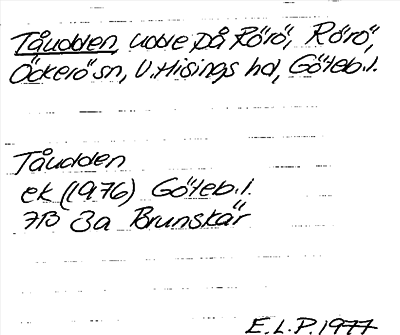 Tåudden, udde på Rörö, Rörö,
Öckerö sn, V. Hisings hd, Göteb. l.
Tåudden
ek (1976) Göteb. l.
7B 3a Brunskär
E.L.P. 1977